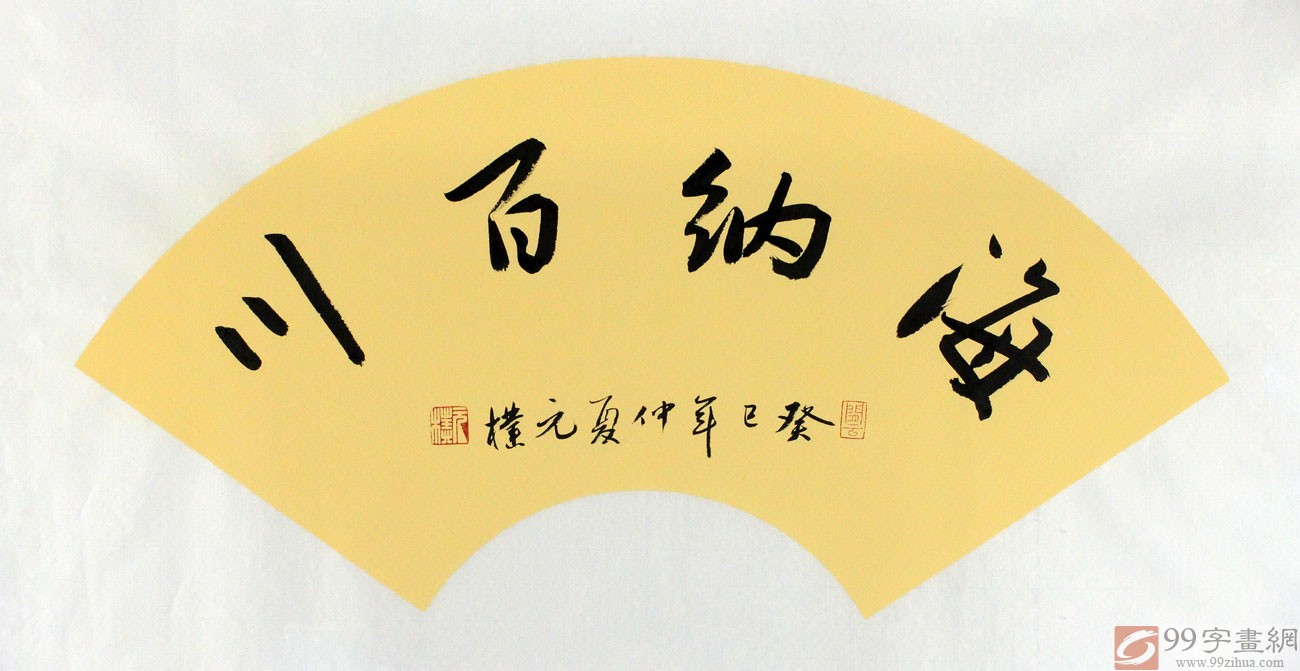 海纳百川
癸巳年仲夏元樸
元樸
99字畫網
www.99zihua.com